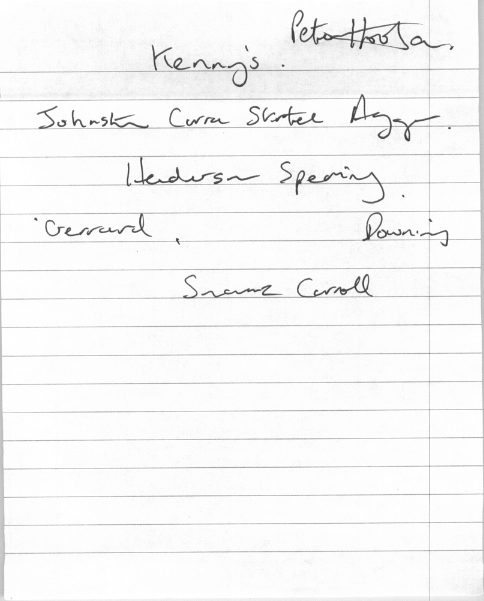 Peter Hooton.
Kenny's.
Johnston Carra Skrtel Agger.
Henderson Spearing.
Gerrard, Downing
Suarez Carroll